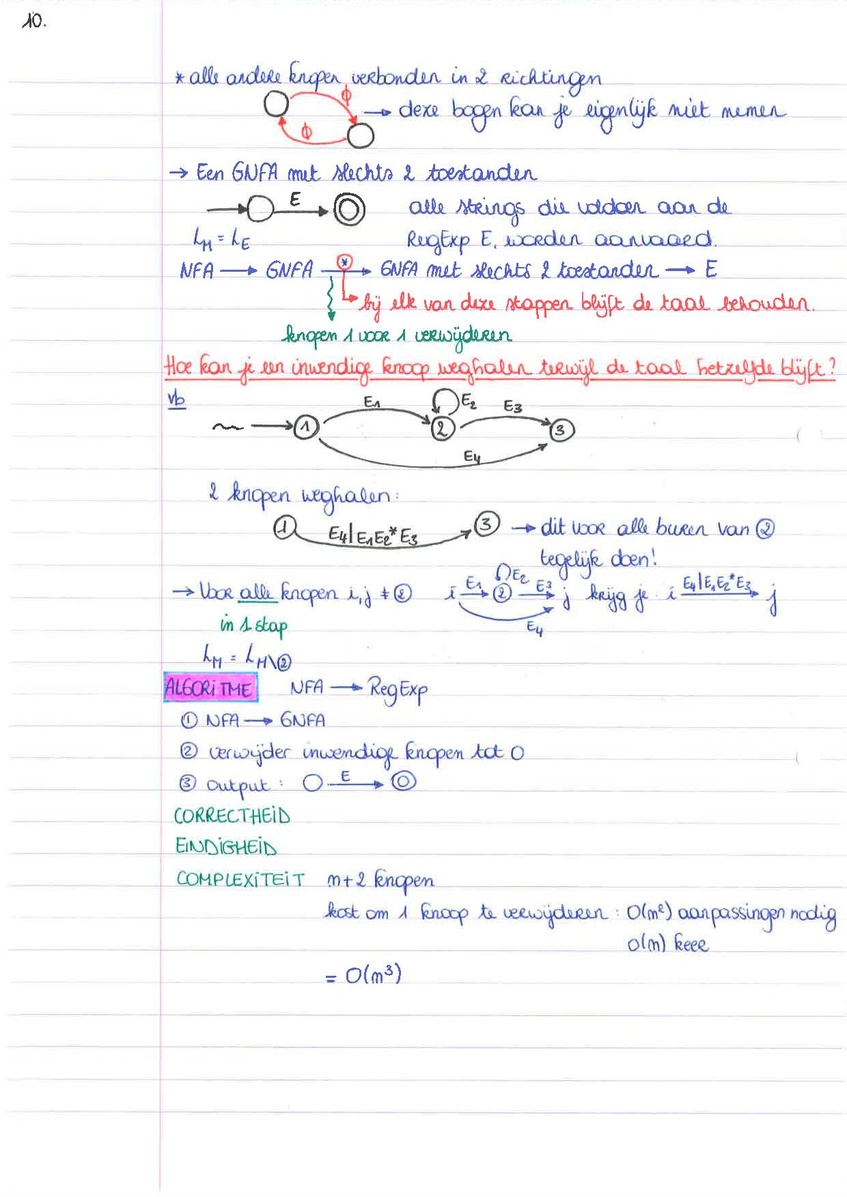 10.
* alle andere knopen verbonden in 2 richtingen
ϕ
→ deze bogen kan je eigenlijk niet nemen
ϕ
→ Een GNFA met slechts 2 toestanden
E
alle strings die voldoen aan de
L_M = L_E
RegExp E, worden aanvaard.
NFA → GNFA → * GNFA met slechts 2 toestanden → E
bij elk van deze stappen blijft de taal behouden.
knopen 1 voor 1 verwijderen
Hoe kan je een inwendige knoop weghalen terwijl de taal hetzelfde blijft?
vb
E1 E2 E3
1 2 3
E4
2 knopen weghalen:
1 E4|E1E2*E3 3 → dit voor alle buren van ②
tegelijk doen!
→ Voor alle knopen i,j ≠ ② i E1 ② E2 E3 j krijg je i E4|E1E2*E3 j
in 1 stap
E4
L_M = L_M\②
ALGORITME NFA → RegExp
① NFA → GNFA
② verwijder inwendige knopen tot 0
③ output: E
CORRECTHEID
EINDIGHEID
COMPLEXITEIT m+2 knopen
kost om 1 knoop te verwijderen : O(m²) aanpassingen nodig
O(m) keer
= O(m³)